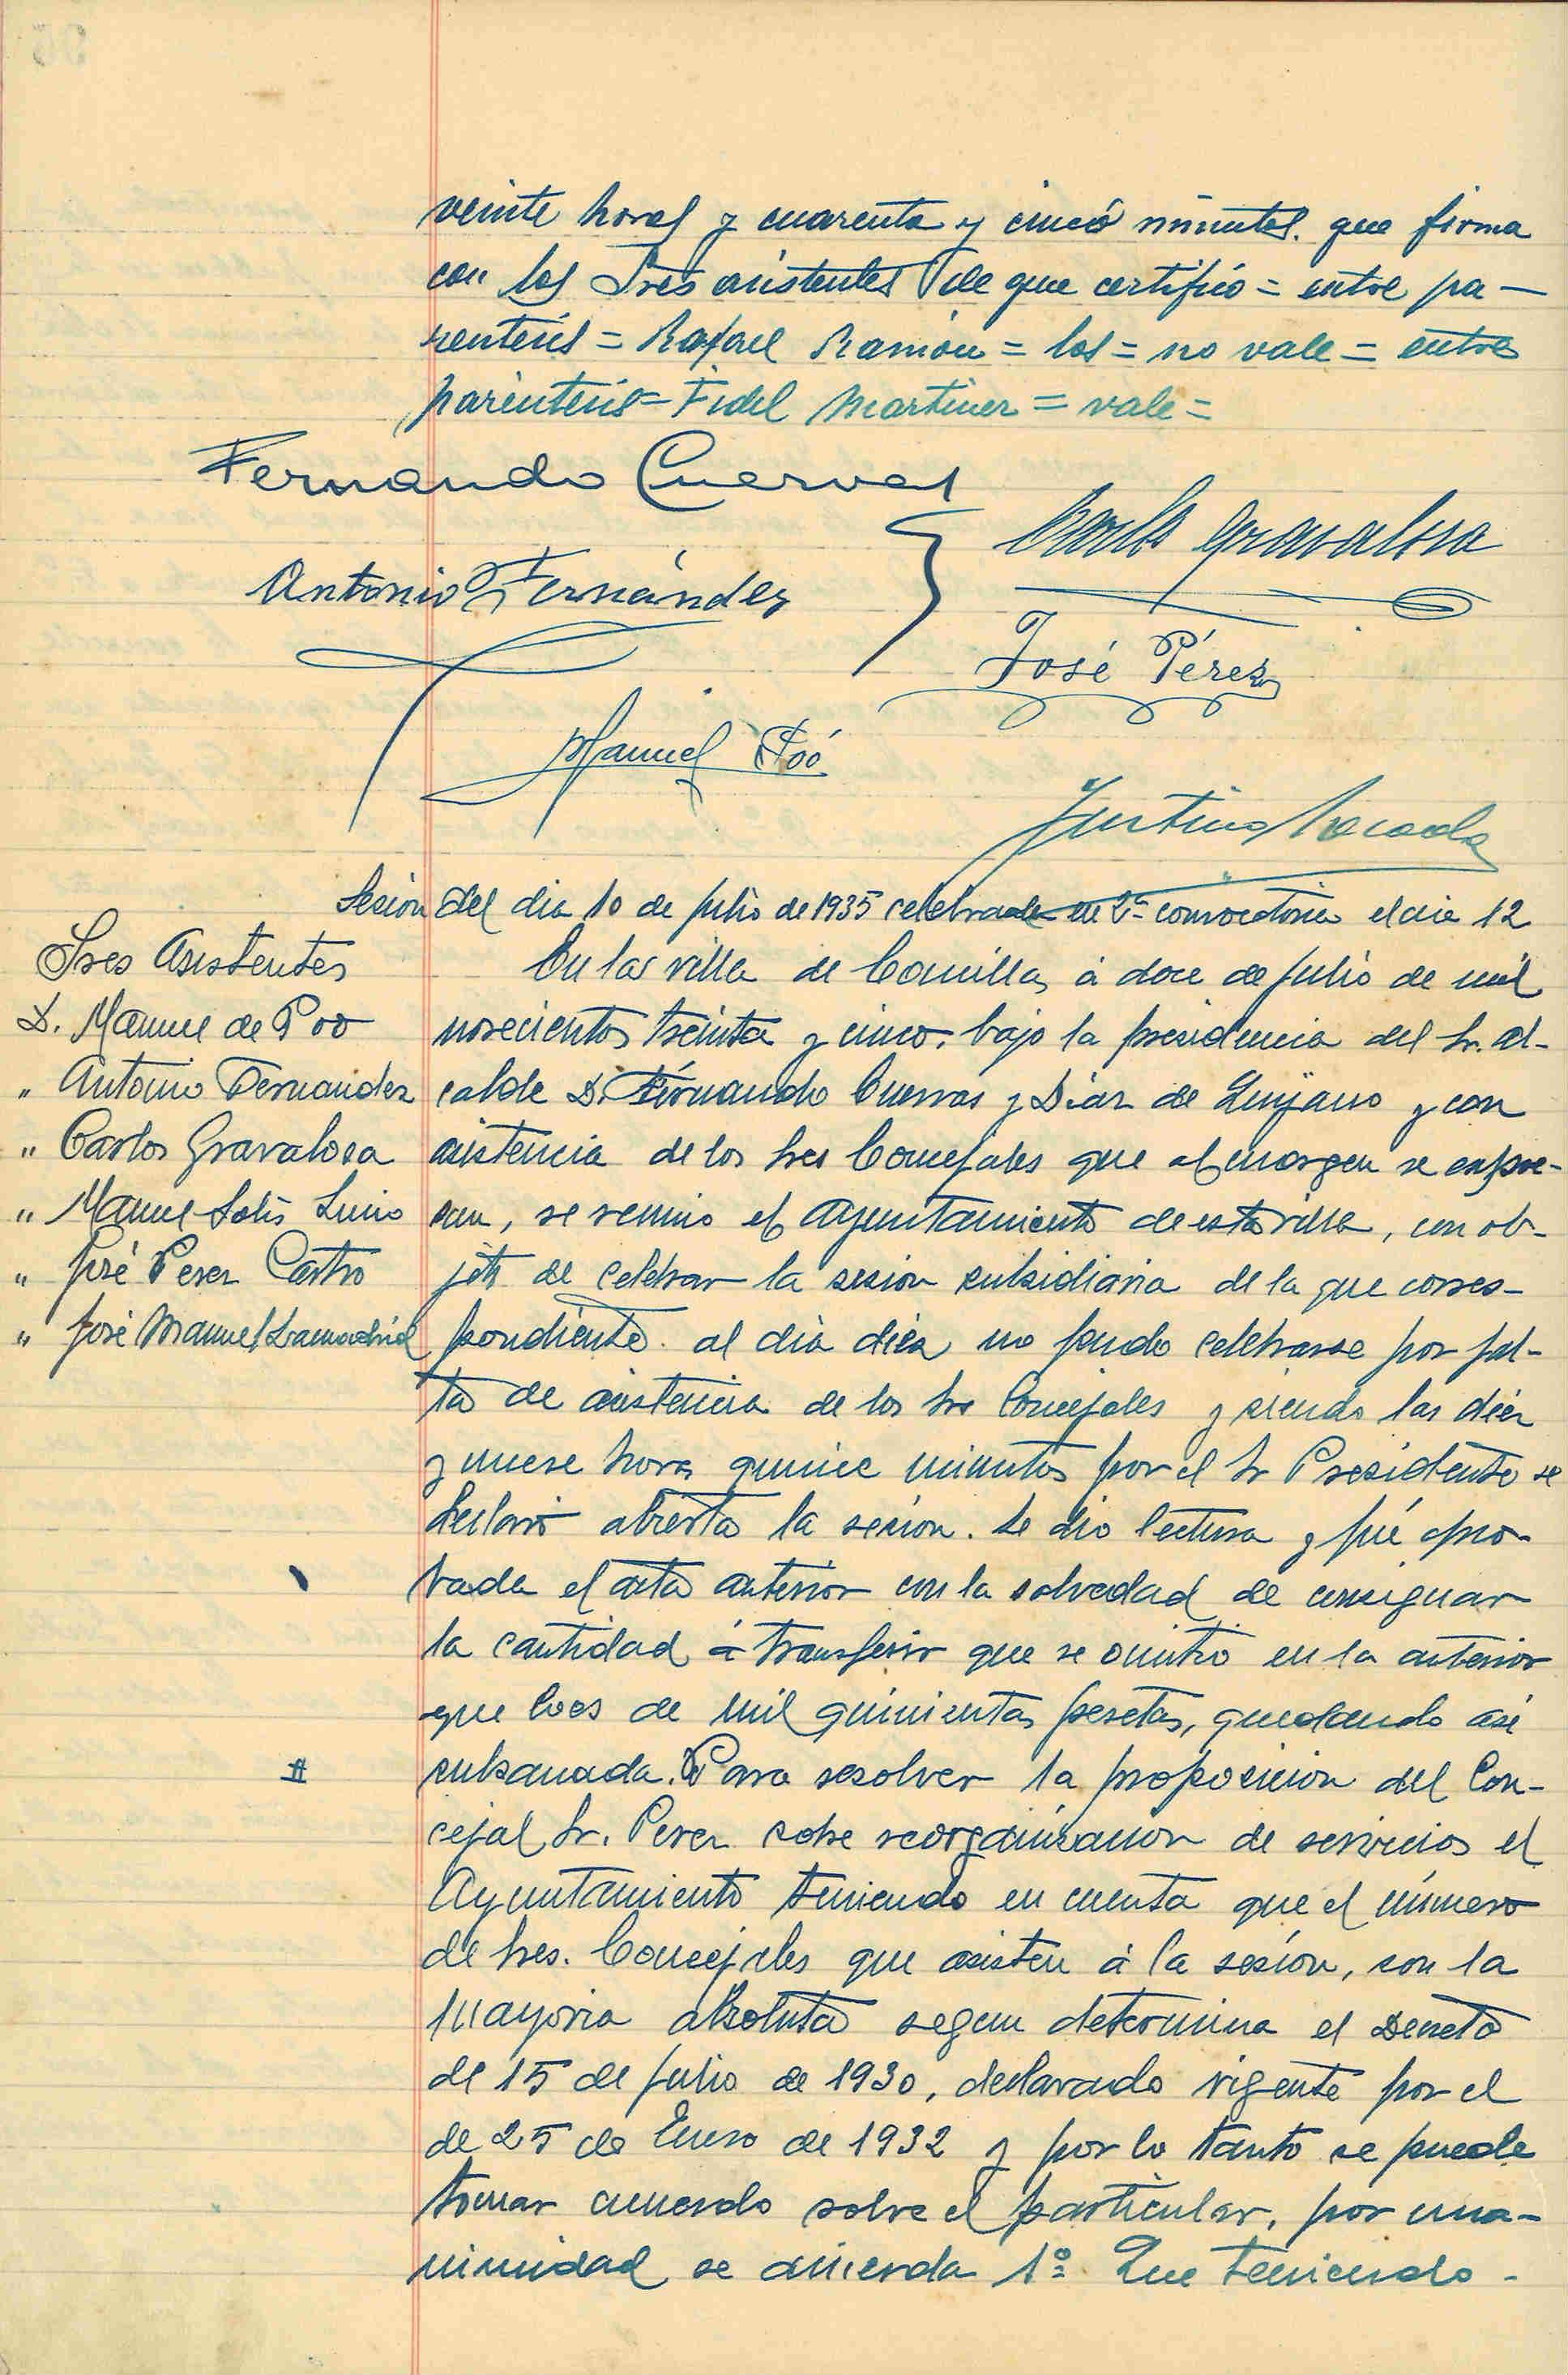 veinte horas y cuarenta y cinco minutos. que firma
con los Sres asistentes de que certifico = entre pa-
rentesis = Rafael Ramón = los = no vale = entre
parentesis = Fidel Martinez = vale =
Fernando Cuevas
Carlos Gravalosa
Antonio Fernández
José Pérez
Manuel Póo
Justino
Sesion del dia 10 de julio de 1935 celebrada en 2ª convocatoria el dia 12
Sres Asistentes
D. Manuel de Poo
" Antonio Fernandez
" Carlos Gravalosa
" Manuel Solis
" José Perez Castro
" José Manuel Lamadrid
En la villa de Comillas á doce de julio de mil
novecientos treinta y cinco, bajo la presidencia del Sr. Al-
calde D. Fernando Cuevas y Diaz de Quijano y con
asistencia de los Sres Concejales que al margen se expre-
san, se reunio el Ayuntamiento de esta villa, con ob-
jeto de celebrar la sesion subsidiaria de la que corres-
pondiente. al dia diez no pudo celebrarse por fal-
ta de asistencia de los Sres Concejales y siendo las diez
y nueve horas quince minutos por el Sr Presidente se
declaró abierta la sesion. Se dio lectura y fué apro-
bada el acta anterior con la salvedad de consignar
la cantidad á transferir que se omitio en la anterior
que lo es de mil quinientas pesetas, quedando asi
II
subsanada. Para resolver la proposicion del Con-
cejal Sr. Perez sobre reorganizacion de servicios el
Ayuntamiento teniendo en cuenta que el número
de Sres. Concejales que asisten á la sesion, son la
mayoria absoluta segun determina el Decreto
de 15 de julio de 1930, declarado vigente por el
de 25 de Enero de 1932 y por lo tanto se puede
tomar acuerdo sobre el particular, por una-
nimidad se acuerda 1º Que teniendo -